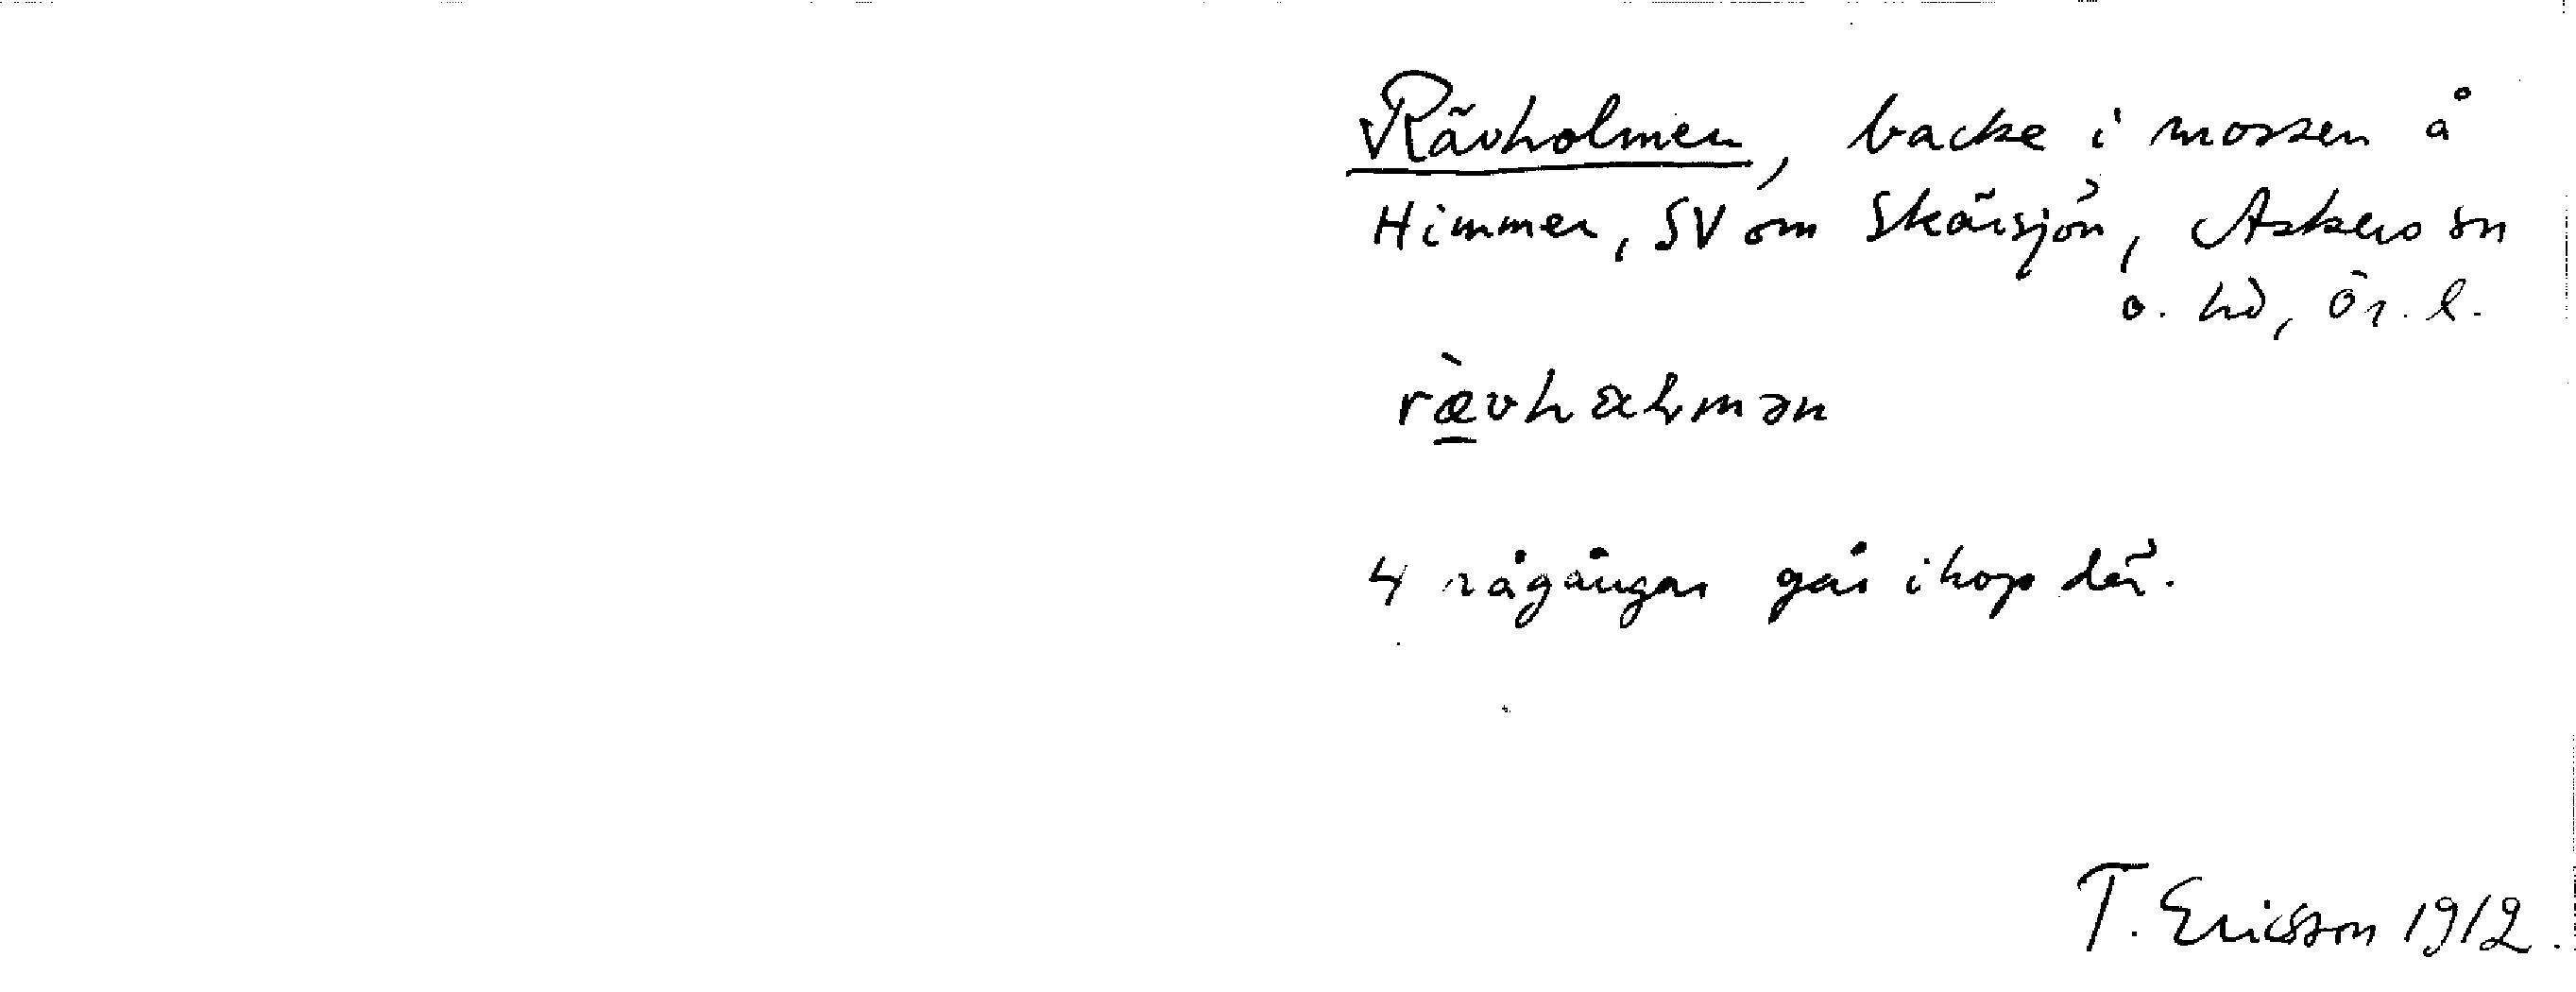 Rävholmen, backe i mossen å
Himmer, SV om Skärsjön, Askers sn
o. hd, Ör. l.
4 rågångar går ihop där.
T. Ericsson 1912.